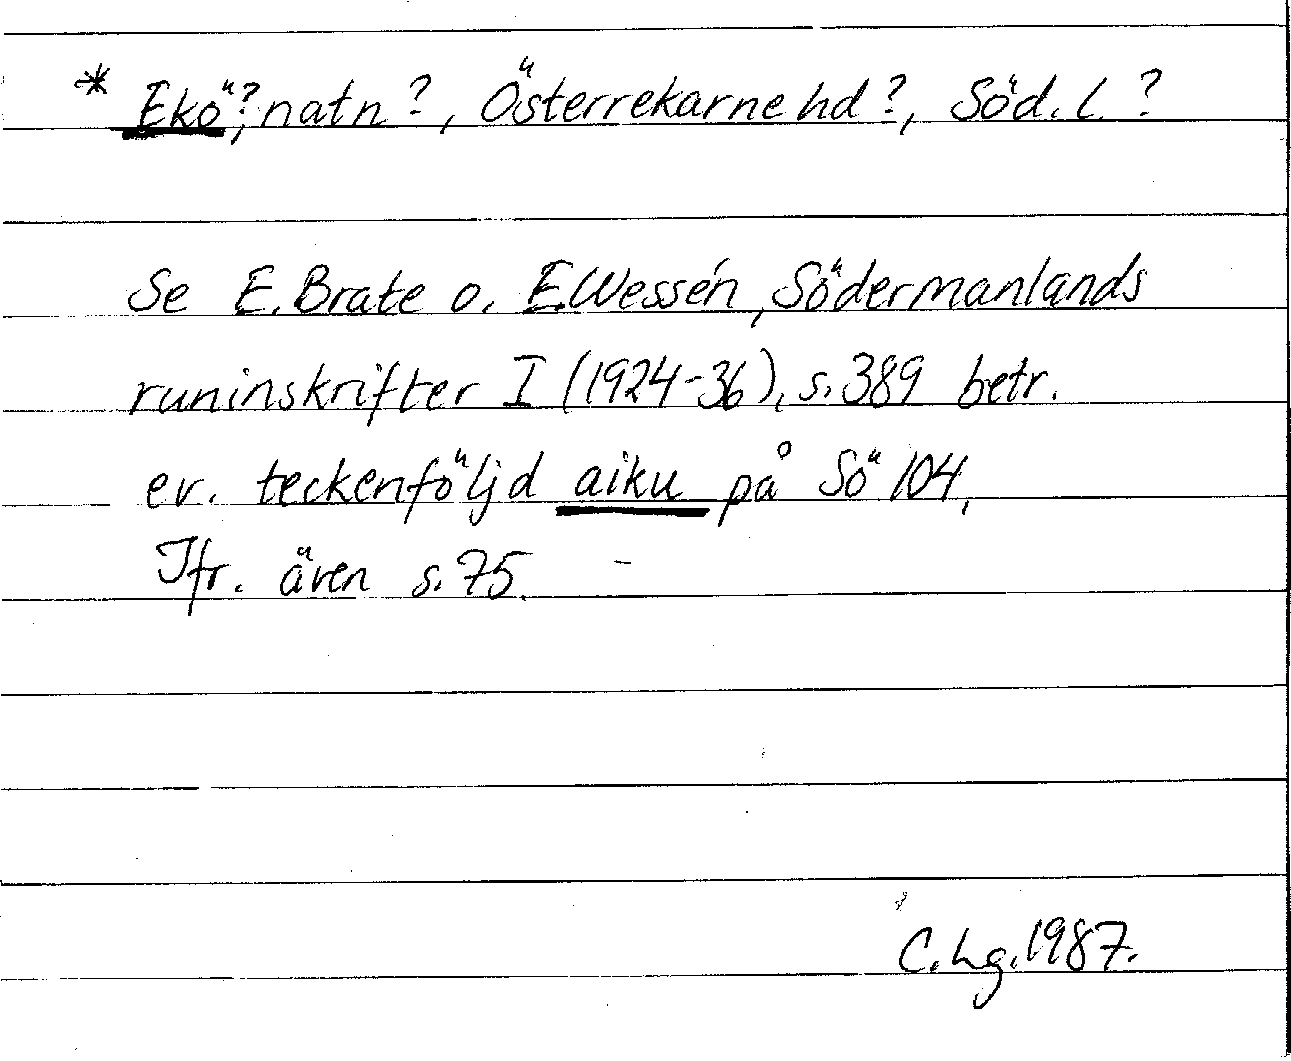 * Ekö?, natn?, Österrekarne hd?, Söd. l.?
Se E. Brate o. E. Wessén, Södermanlands
runinskrifter I (1924-36), s. 389 betr.
ev. teckenföljd aiku på Sö 104,
Jfr. även s. 75. –
C. hg. 1987.